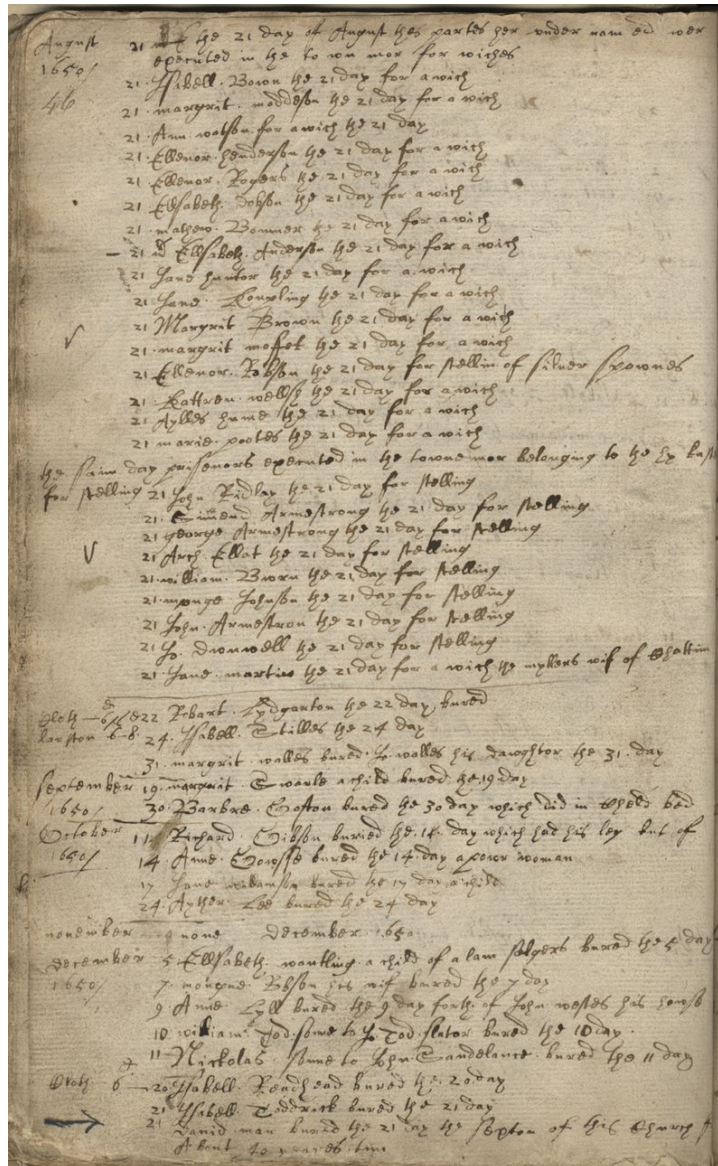 August 21 the 21 day of August thes partes her under nam ed wer
1650/ executed in the to wn mor for wiches
46 21 Isibell. Bown the 21 day for a wich
21 margrit. maddeson the 21 day for a wich
21 Ann. watson for a wich the 21 day
21 Ellenor. henderson the 21 day for a wich
21 Ellenor. Rogers the 21 day for a wich
21 Ellsabeth. dobson the 21 day for a wich
21 mathew. Bonner the 21 day for a wich
21 Ellsabeth. Anderson the 21 day for a wich
21 Jane huntor the 21 day for a wich
21 Jane. Koupling the 21 day for a wich
21 Margrit Brown the 21 day for a wich
21 margrit moffet the 21 day for a wich
21 Ellenor. Robson the 21 day for stellin of silver spownes
21 Kattren. wellsh the 21 day for a wich
21 Aylles hume the 21 day for a wich
21 marie. pootes the 21 day for a wich
the same day prissenors executed in the towne mor belonging to the hy
for stelling 21 John Ridlay the 21 day for stelling
21 Armestrong the 21 day for stelling
21 george Armestrong the 21 day for stelling
21 Arch Ellat the 21 day for stelling
21 william. Bworn the 21 day for stelling
21 Johnson the 21 day for stelling
21 John. Armestron the 21 day for stelling
21 Jo. the 21 day for stelling
21 Jane. martin the 21 day for a wich the myllers wif of Chattim
22 Robart. the 22 day bured
24 Isabell. Stilles the 24 day
31 margrit walles bured Jo walles his dawghtor the 31 day
September 19 margrit. Swarle a child bured the 19 day
1650/ 30 Barbre. Gofton bured the 30 day which did in cheld bed
October 11 Richard. Gibson buried the day which had his leg but of
1650/ 14 Anne. bured the 14 day a powr woman
17 Jane bured the 17 day a child
24 Ayther. Lee bured the 24 day
november none December 1650
December 5 Ellsabeth. wantling a child of a lam solgers bured the 5 day
1650/ 7 Robson his wif bured the 7 day
9 Anne. Lyll bured the 9 day forth of John westes his howse
10 william. Tod sonne to Jo Tod slator bured the 10 day
11 Nickolas sonne to John Sandelance bured the 11 day
6 20 Isabell. Readhead bured the 20 day
21 Isbell. Toddrick bured the 21 day
21 David man bured the 21 day the septon of this Church
About yeares time